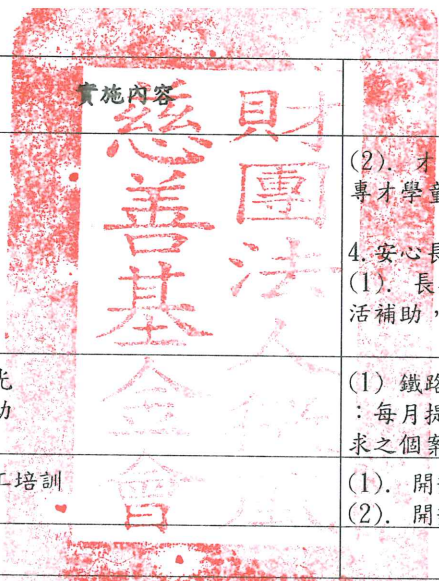 實施內容
財團法人
慈善基金會
(2). 才
專才學童
4.安心長
(1). 長
活補助，
(1) 鐵路
：每月提
求之個案
工培訓
(1). 開
(2). 開